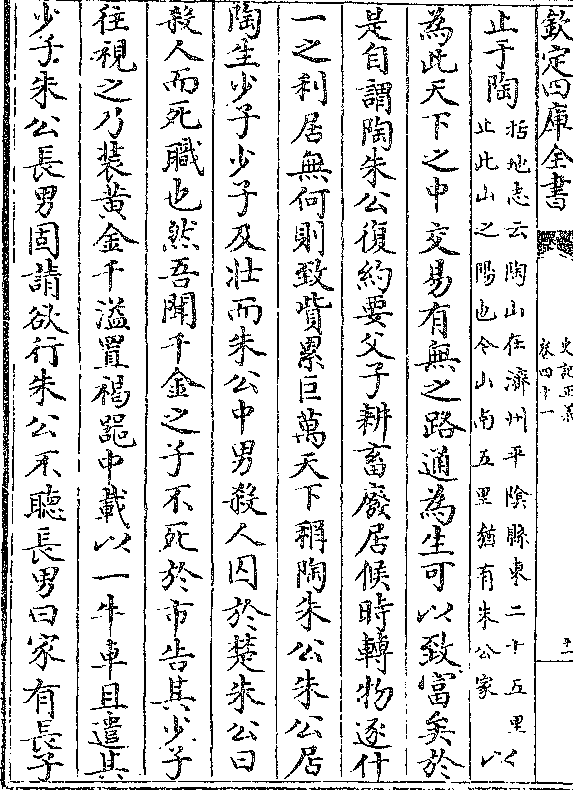 欽定四庫全書
史記正義
卷四十一
十一
止于陶
括地志云陶山在濟州平陰縣東二十五里
止此山之陽也今山南五里猶有朱公冢
以
為此天下之中交易有無之路通為生可以致富矣於
是自謂陶朱公復約要父子耕畜廢居候時轉物逐什
一之利居無何則致貲累巨萬天下稱陶朱公朱公居
陶生少子少子及壯而朱公中男殺人囚於楚朱公曰
殺人而死職也然吾聞千金之子不死於市告其少子
往視之乃裝黃金千溢置褐器中載以一牛車且遣其
少子朱公長男固請欲行朱公不聽長男曰家有長子